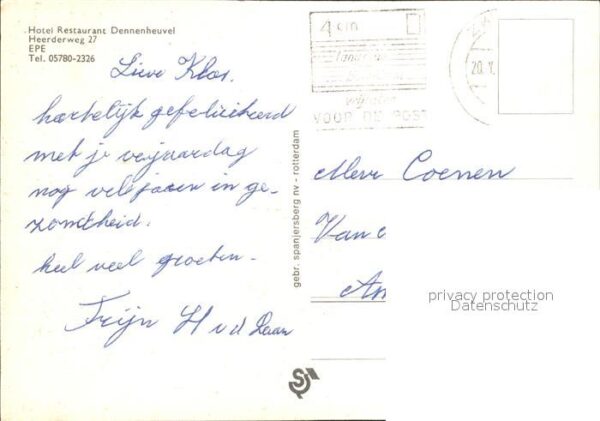 Hotel Restaurant Dennenheuvel
Heerderweg 27
EPE
Tel. 05780-2326
Lieve Klas.
hartelijk gefeliciteerd
met je verjaardag
nog vele jaren in ge-
zondheid.
heel veel groeten.
Trijn H v d Laan
gebr. spanjersberg nv - rotterdam
4 cm
vrijlaten
VOOR DE POST
20.1
Mevr Coenen
Van
Am
privacy protection
Datenschutz